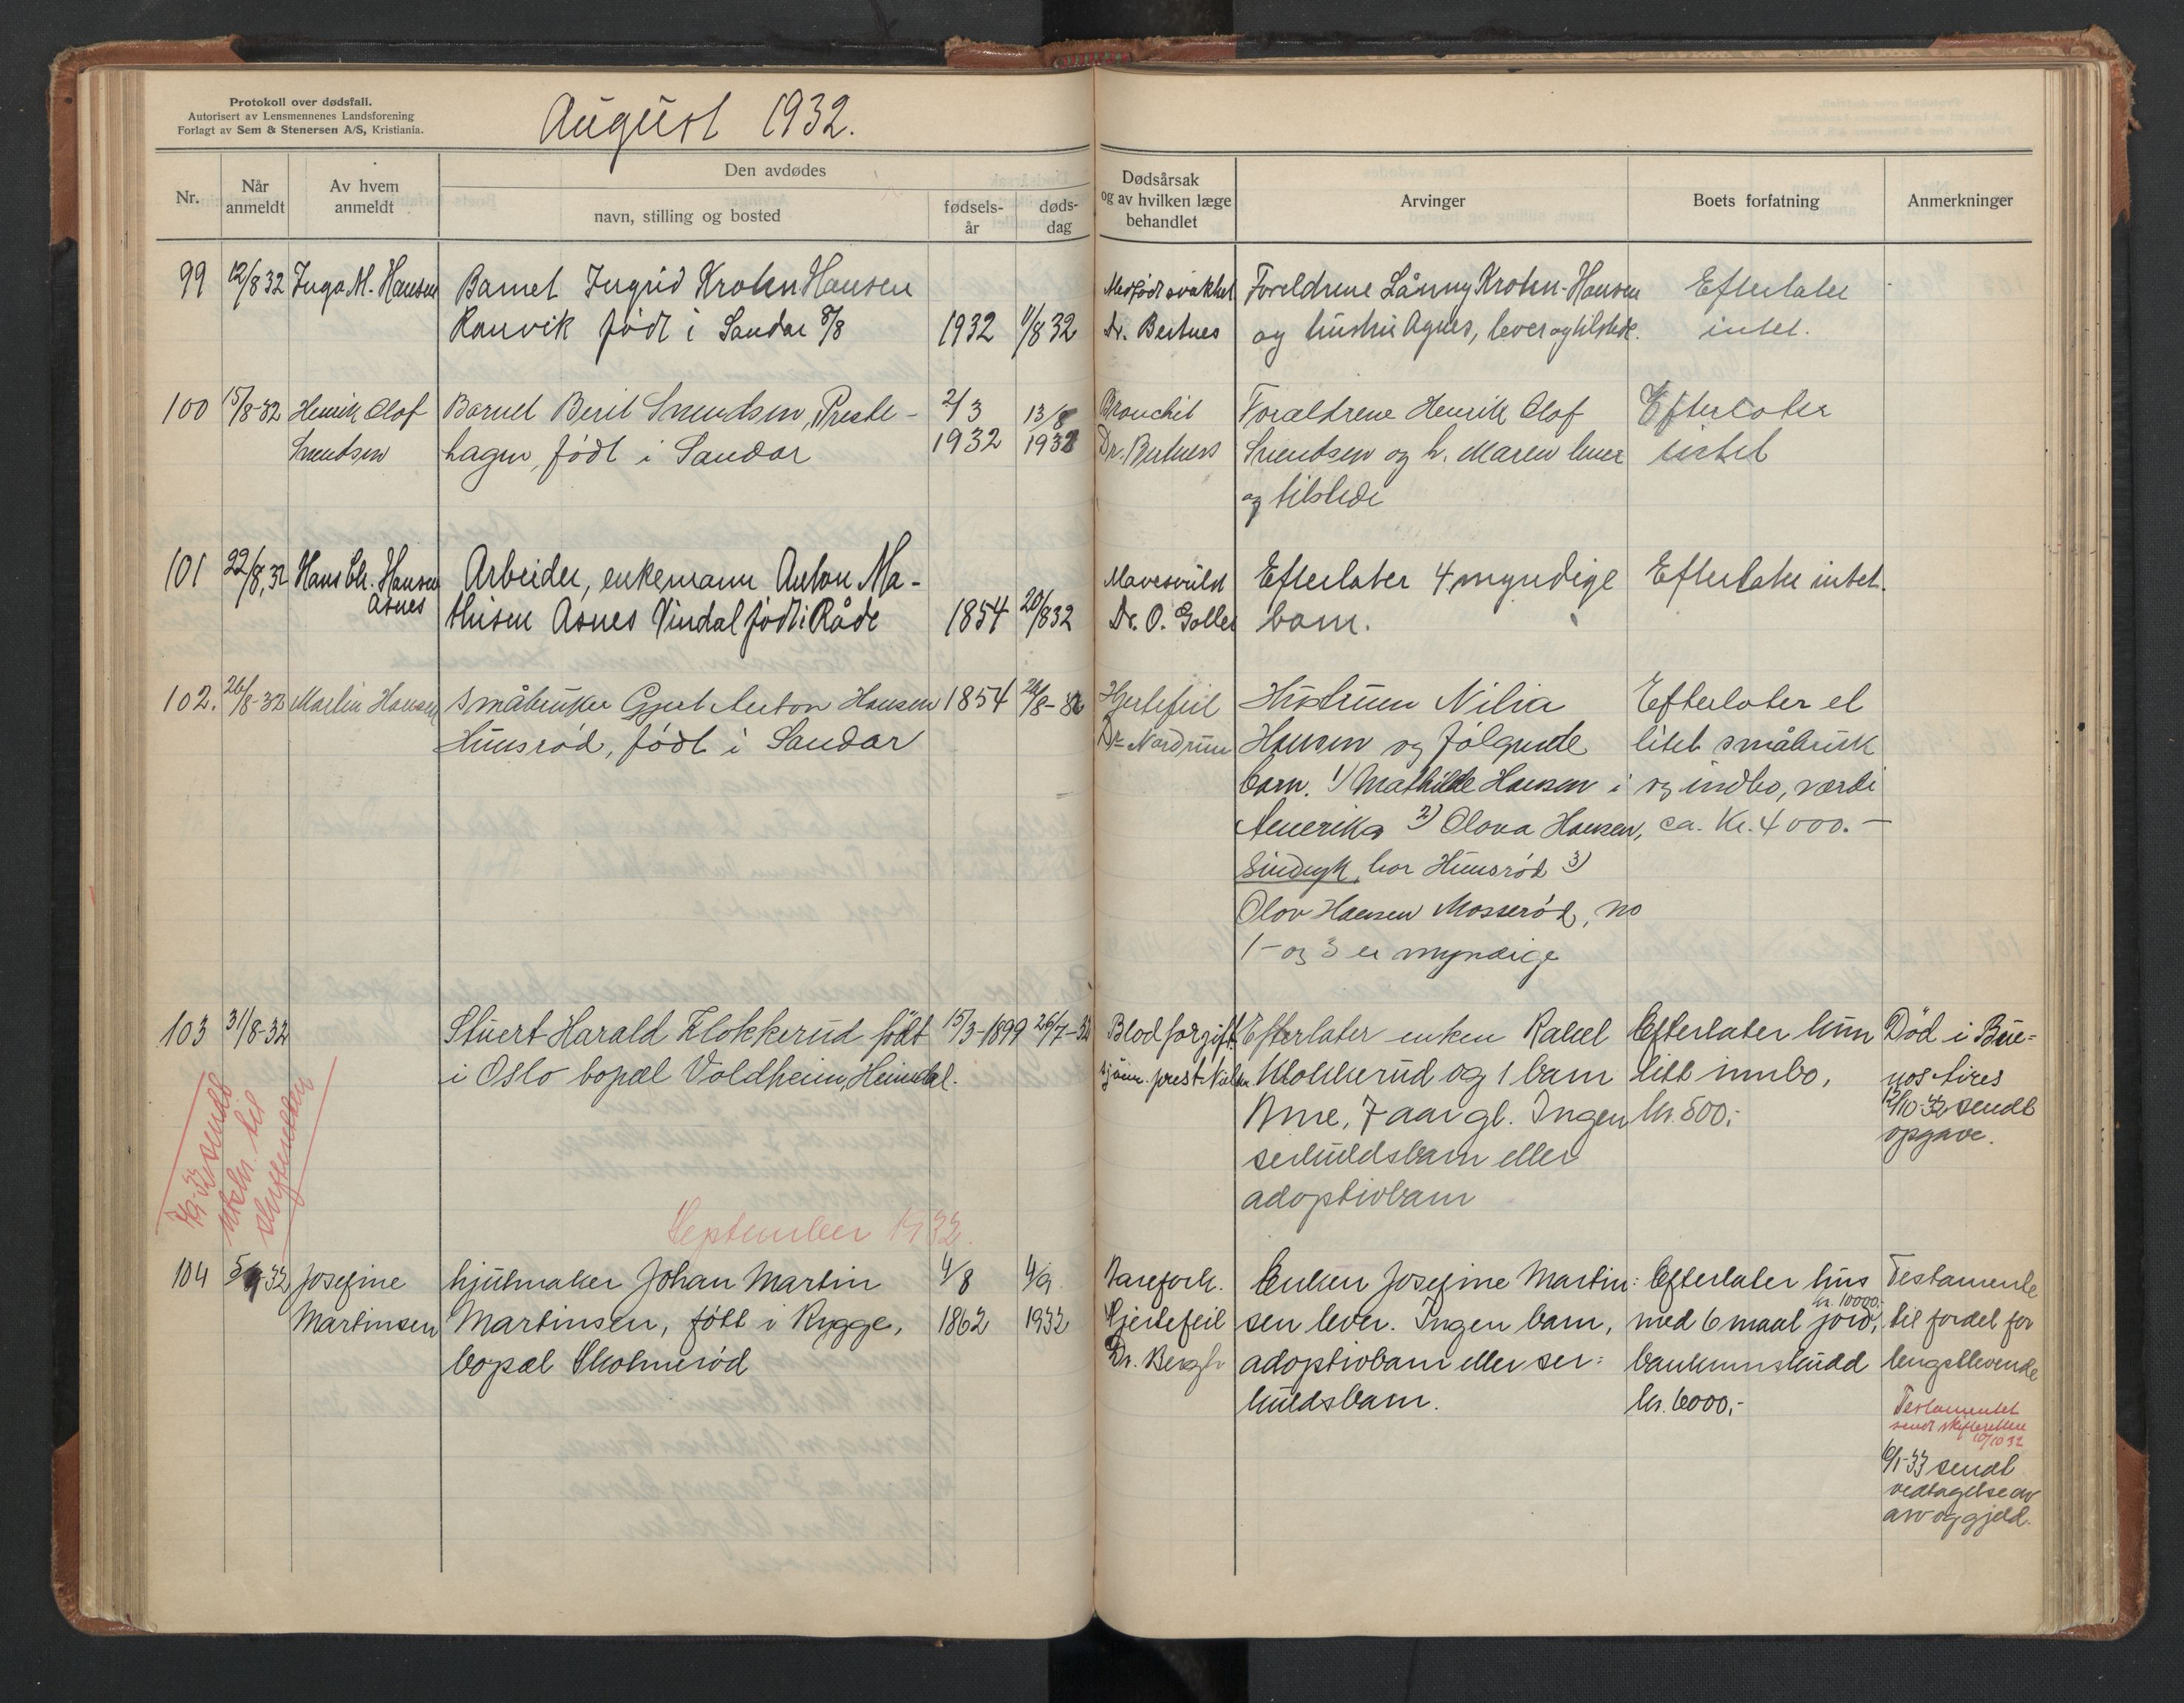 Protokoll over dødsfall.
Autorisert av Lensmennenes Landsforening
Forlagt av Sem & Stenersen A/S, Kristiania.
August 1932.
Nr.
Når anmeldt
Av hvem anmeldt
Den avdødes
navn, stilling og bosted
fødsels-år
døds-dag
Dødsårsak
og av hvilken læge
behandlet
Arvinger
Boets forfatning
Anmerkninger
99 12/8 32 Inga M. Hansen Barnet Ingrid Krohn Hansen
Ranvik født i Sandar 8/8 1932 11/8 32
Medfødt svakhet
Dr. Bertnes
Foreldrene Krohn-Hansen
og hustru Agnes, lever og tilstede.
Efterlater
intet.
100 15/8-32 Henrik Olof
Svendsen
Barnet Berit Svendsen, Preste-
hagen, født i Sandar
2/3
1932
13/8
1932
Bronchit
Dr. Bertness
Foraldrene Henrik Olof
Svendsen og h. Maren lever
og tilstede
Efterlater
intet
101 22/8,32 Hans Chr. Hansen
Asnes
Arbeider, enkemann Anton Ma-
thisen Asnes Vindal født i Råde 1854 20/832
Mavesvulst
Dr. O. Goller
Efterlater 4 myndige
barn.
Efterlater intet.
102. 26/8-32 Martin Hansen Småbruker Gjert Anton Hansen 1854
Hunsrød, født i Sandar
Hjertefeil
Dr. Nordrum
Hustruen Nilia
Hansen og følgende
barn. 1) Mathilde Hansen i
Amerika 2) Olava Hansen,
Sindsyk, bor Hunsrød 3)
Olav Hansen Mosserød, no
1- og 3 er myndige
Efterlater et
litet småbruk
og indbo, værdi
ca. Kr. 4000.-
103 31/8-32 Stuert Harald Klokkerud født 15/3-1899 26/7-32
i Oslo bopæl Voldheim, Heimdal.
Blodforgift.
sjøm. prest
Efterlater enken Rakel
Klokkerud og 1 barn
Arne, 7 aar gl. Ingen
serkuldsbarn eller
adoptivbarn
Efterlater kun
litt innbo,
kr. 500.-
Død i Bue-
nos Aires
12/10-32 sendt
opgave.
September 1932.
104 5/9-32 Josefine
Martinsen
hjulmaker Johan Martin
Martinsen, født i Rygge,
bopæl Skolmerød
4/8
1862
4/9
1932
Aarefork.
Hjertefeil
Dr. Bergh
Enken Josefine Martin-
sen lever. Ingen barn,
adoptivbarn eller ser-
kuldsbarn.
Efterlater hus
kr. 10000.-
med 6 maal jord,
bankinnskudd
kr. 6000,-
Testamente
til fordel for
lengstlevende
Testamentet
sendt skifteretten
10/10 32
6/1-33 sendt
vedtagelse av
arv og gjeld.